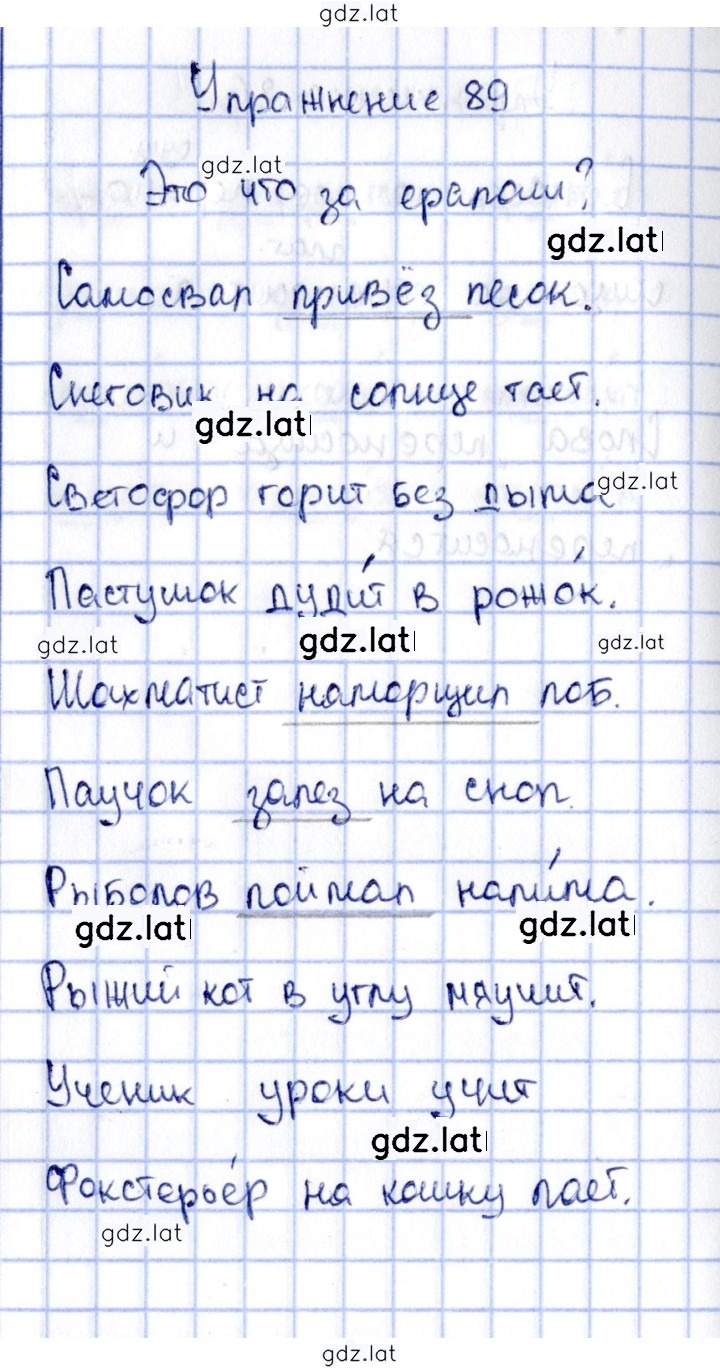 gdz.lat
Упражнение 89
gdz.lat
Это что за ералаш?
gdz.lat
Самосвал привёз песок.
Снеговик на солнце тает.
gdz.lat
Светофор горит без дыма
gdz.lat
Пастушок дуди́т в рожо́к.
gdz.lat gdz.lat gdz.lat
Шахматист наморщил лоб.
Паучок залез на сноп.
Рыболов поймал нали́ма.
gdz.lat gdz.lat
Рыжий кот в углу мяучит.
Ученик уроки учит
gdz.lat
Фокстерье́р на кошку лает.
gdz.lat
gdz.lat